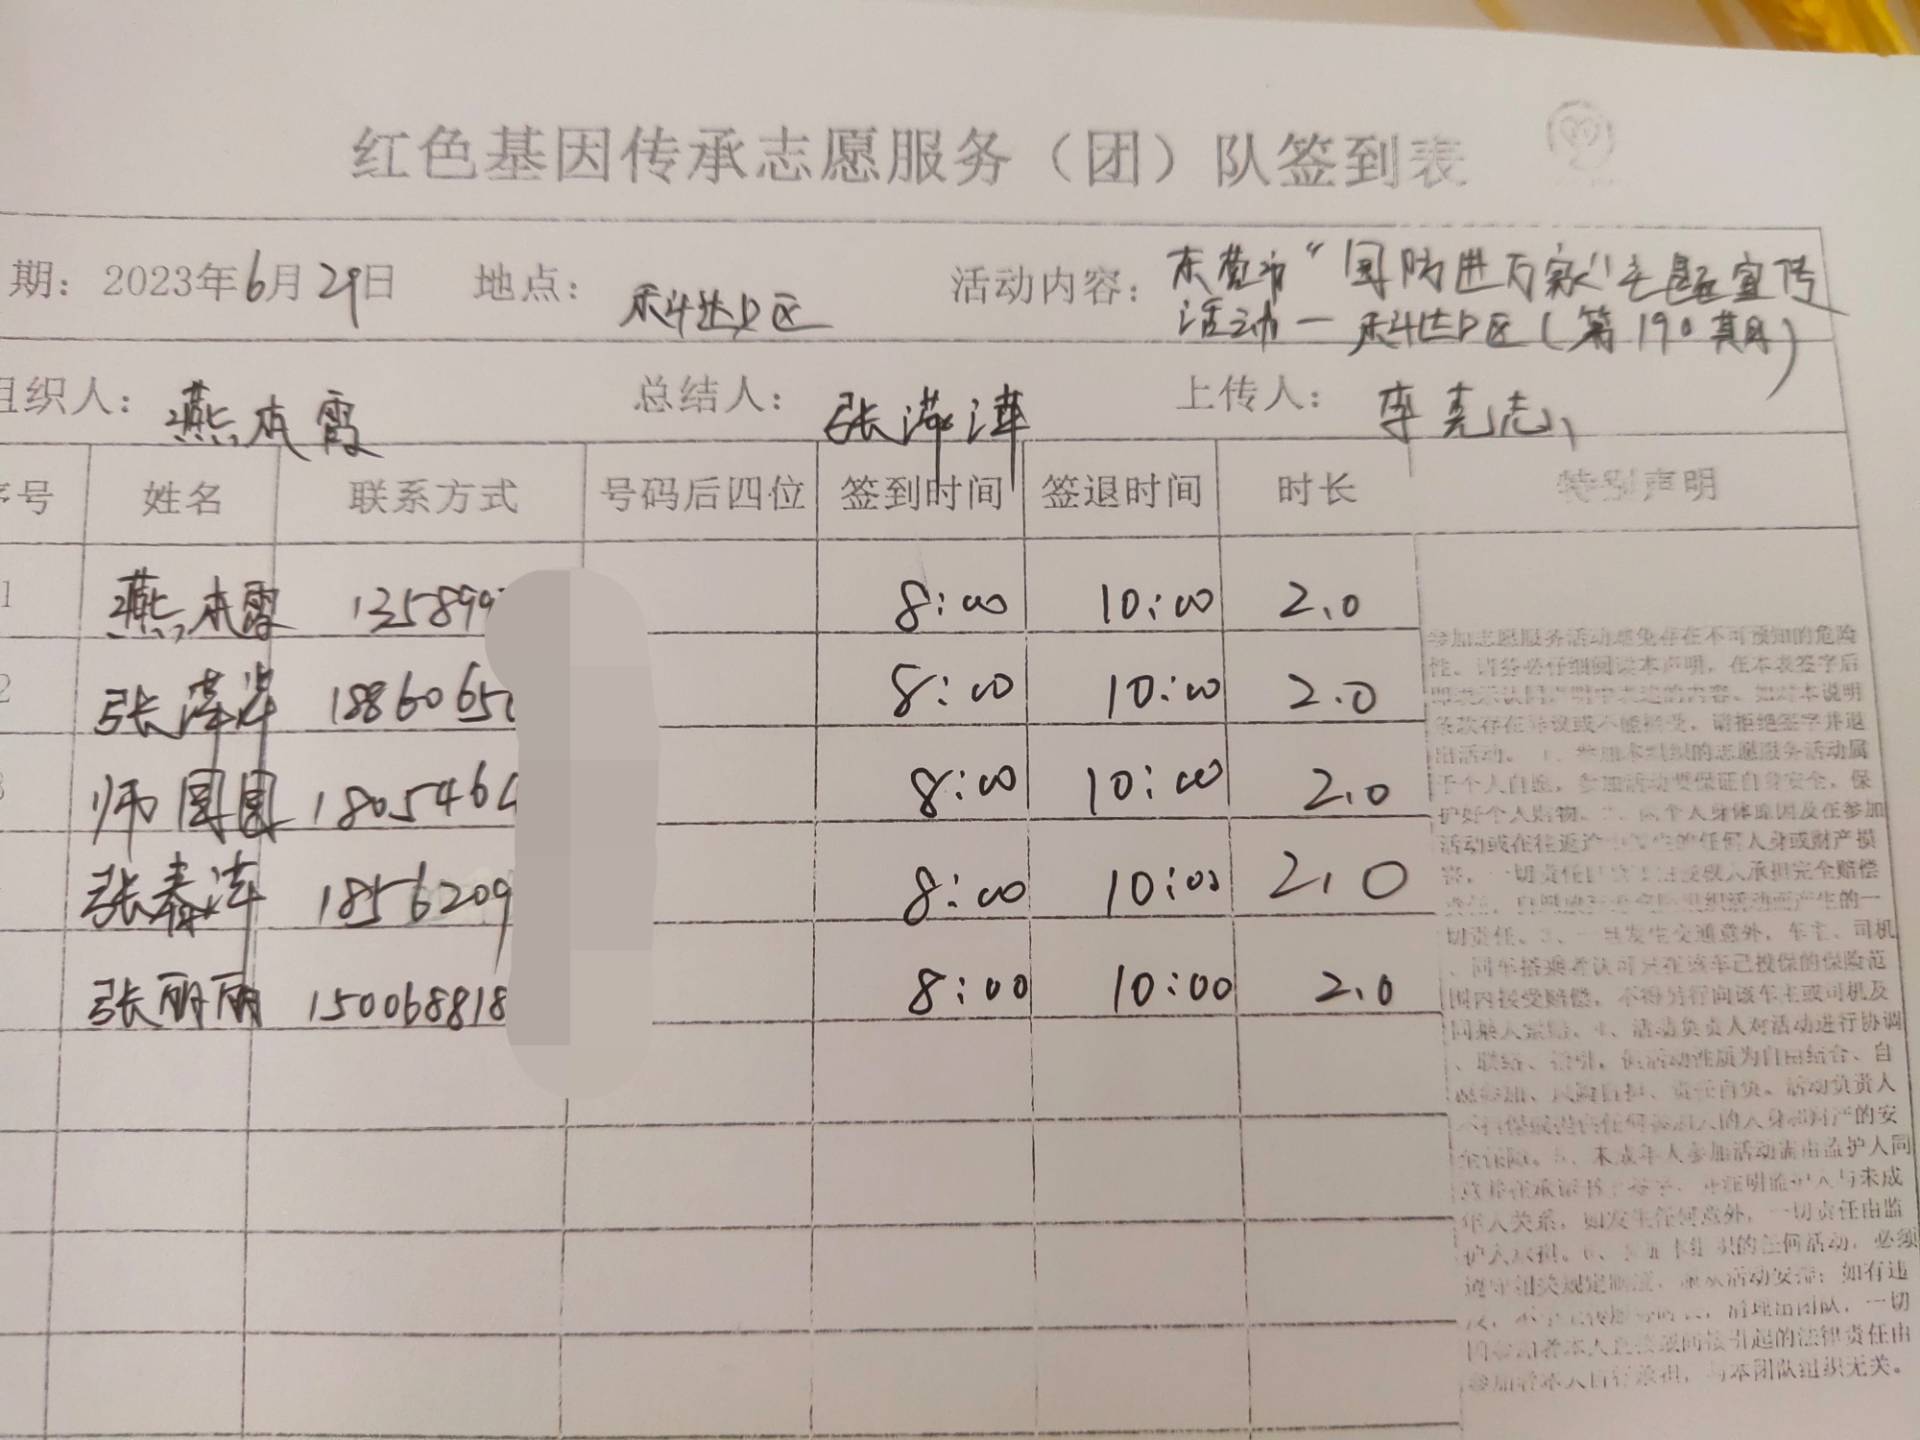 红色基因传承志愿服务（团）队签到表
期：2023年6月29日 地点： 社区 活动内容：东营市“国防进万家”主题宣传
活动一 社区（第190期）
组织人：燕本霞 总结人：张 上传人：李 志
序号 姓名 联系方式 号码后四位 签到时间 签退时间 时长 特别声明
1 燕本霞 135899 8:00 10:00 2.0
2 张 18860650 8:00 10:00 2.0
3 师圆圆 1805464 8:00 10:00 2.0
张春 1856209 8:00 10:00 2.0
张丽丽 150068818 8:00 10:00 2.0
参加志愿服务活动难免存在不可预知的危险
性，请务必仔细阅读本声明，在本表签字后
即表示认同声明中表述的内容。如对本说明
条款存在异议或不能接受，请拒绝签字并退
出活动。1、参加本组织的志愿服务活动属
于个人自愿，参加活动要保证自身安全，保
护好个人财物。2、因个人身体原因及在参加
活动或在往返途中发生的任何人身或财产损
害，一切责任 承担完全赔偿
责任， 活动而产生的一
切责任。3、一旦发生交通意外，车主、司机
、同车搭乘者认可只在该车已投保的保险范
围内接受赔偿，不得另行向该车主或司机及
同乘人索赔。4、活动负责人对活动进行协调
、联络、指引，但活动性质为自由结合、自
愿参加、风险自担、责任自负。活动负责人
不担保或担负任何参加人的人身和财产的安
全保障。5、未成年人参加活动需由监护人同
意并在承诺书上签字，并证明监护人与未成
年人关系，如发生任何意外，一切责任由监
护人承担。6、 组织的任何活动，必须
遵守相关规定制度，服从活动安排；如有违
反， 清理出团队，一切
因参加者本人直接或间接引起的法律责任由
参加者本人自行承担，与本团队组织无关。